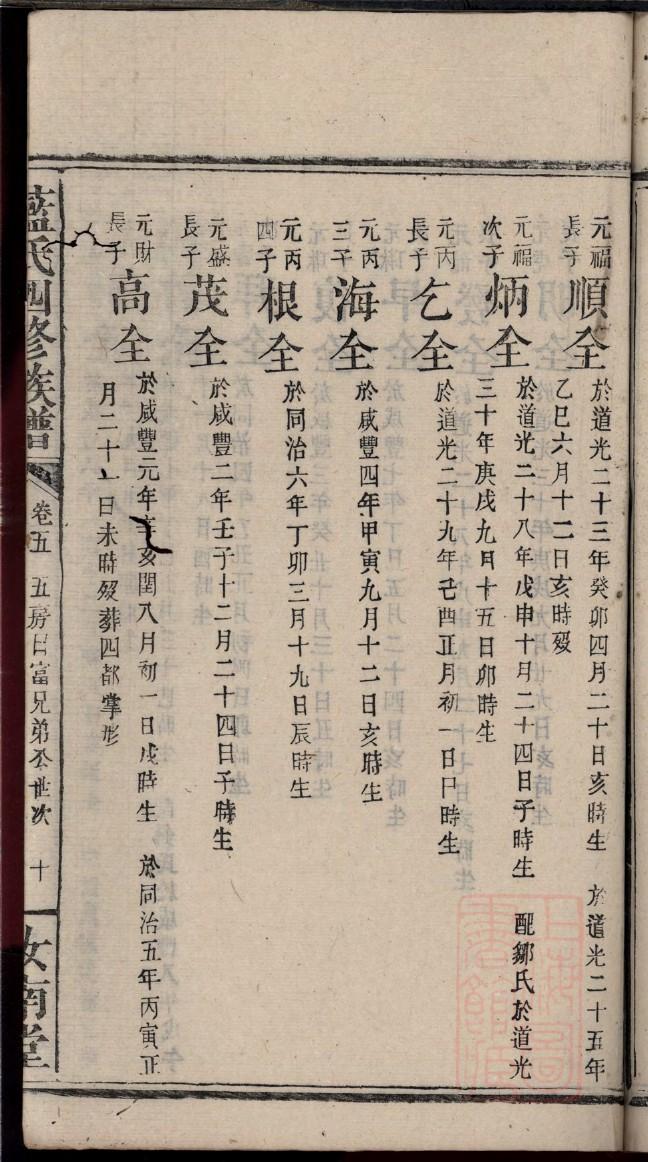 元福長子 順全 於道光二十三年癸卯四月二十日亥時生 於道光二十五年
乙巳六月十二日亥時歿
元福次子 炳全 於道光二十八年戊申十月二十四日子時生 配鄒氏於道光
三十年庚戌九月十五日卯時生
元丙長子 乞全 於道光二十九年己酉正月初一日尸時生
元丙三子 海全 於咸豐四年甲寅九月十二日亥時生
元丙四子 根全 於同治六年丁卯三月十九日辰時生
元盛長子 茂全 於咸豐二年壬子十二月二十四日子時生
元財長子 高全 於咸豐元年辛亥閏八月初一日戌時生 於同治五年丙寅正
月二十一日未時歿葬四都掌形
藍氏四修族譜 卷五 五房日富兄弟公世次 十 汝南堂